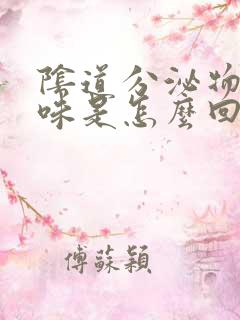 陰道分泌物
味是怎麼回
傅蘇穎